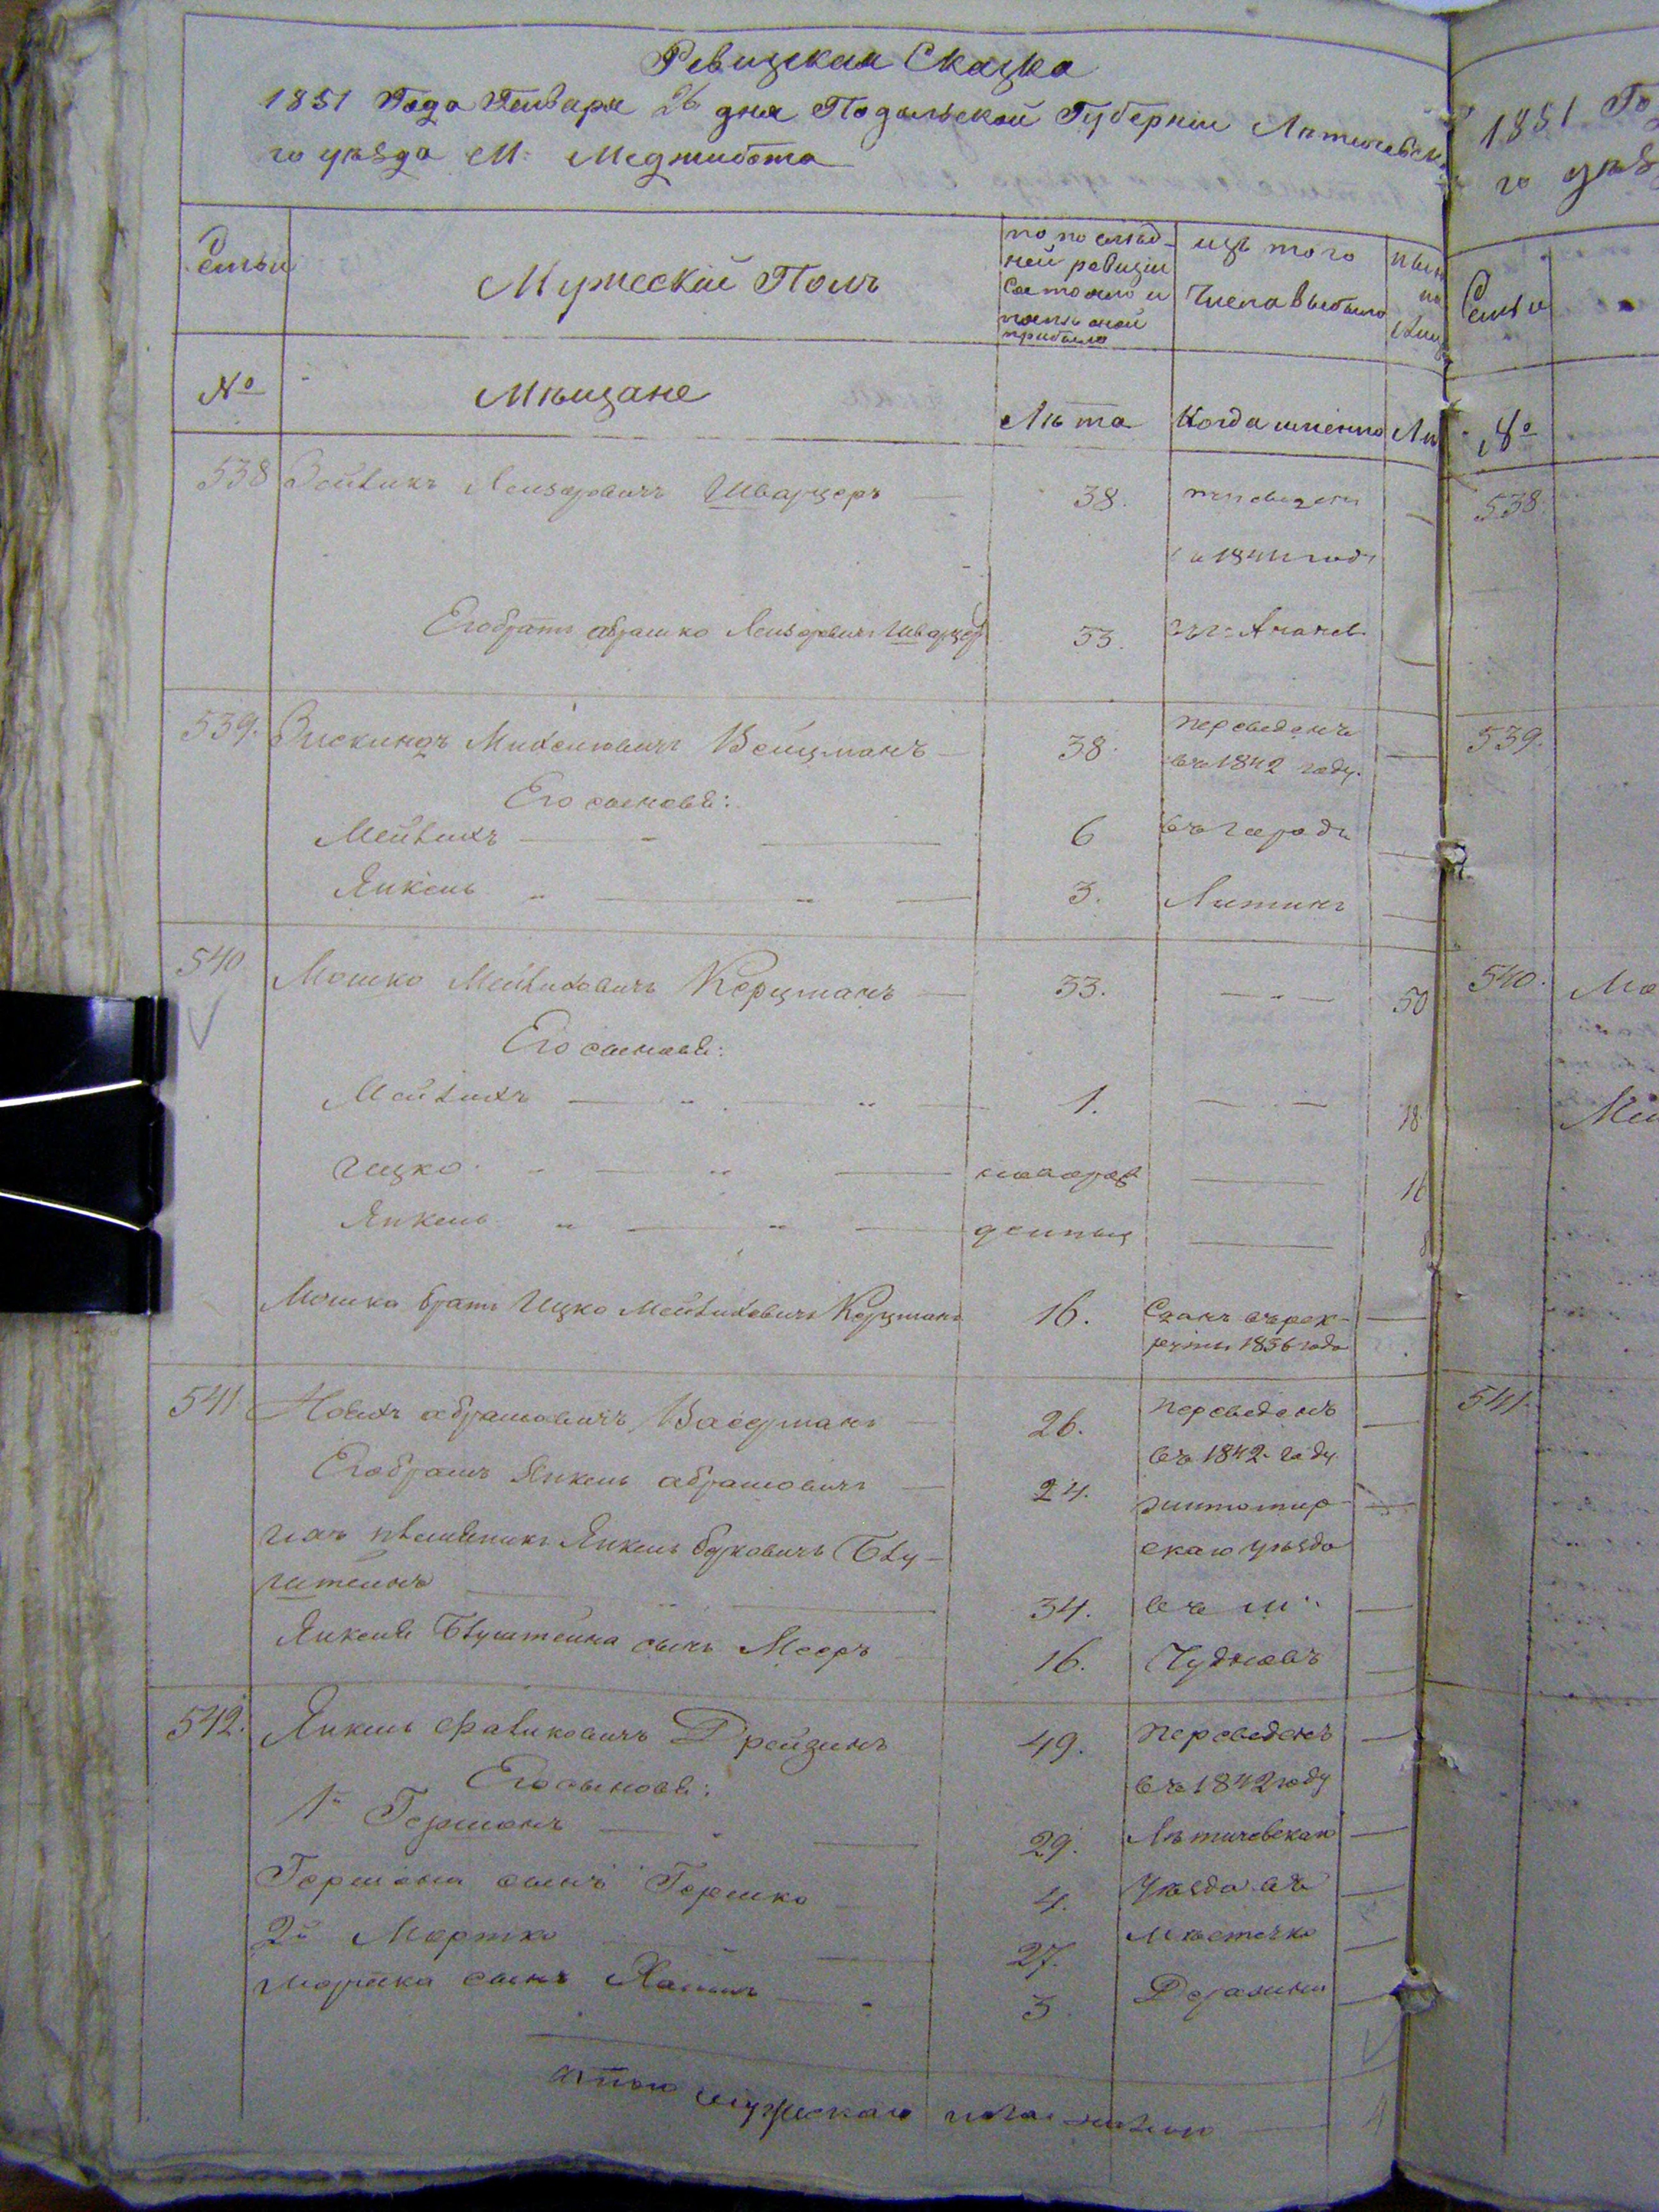 Ревизская Сказка
1851 Года Генваря 26 дня Подольской Губернии Летичевска
го уѣзда М: Меджибожа
Семьи
Мужескій Полъ
по послѣд-
ней ревизіи
Состояло и
послѣ оной
прибыло
изъ того
Числа выбыло
№
Мѣщане
Лѣта
Когда именно
Лѣ
538
Лейзоровичъ Шварцеръ
38.
переведены
в 1841 году
Его братъ Абрашко Лейзоровичъ Шварцеръ
53.
539.
Зискиндъ Михелювичъ Вейцманъ
38.
переведенъ
въ 1842 году.
Его сыновья:
Мейлихъ
6
въ городъ
Янкель
3.
Литинъ
540
Мошко Мейлиховичъ Керцманъ
33.
50
Его сыновья:
Мейлихъ
1.
18
Ицко
новорож
16
Янкель
денныя
Мошка братъ Ицко Мейлиховичъ Керцманъ
16.
Сданъ въ рек-
руты 1836 года
541
Абрамовичъ Васерманъ
26.
переведенъ
въ 1842 году
Его братъ Янкель Абрамовичъ
24.
житомир
скаго уѣзда
ихъ племянникъ Янкель Берковичъ
34.
въ м:
сынъ Мееръ
16.
Чудновъ
542.
Янкель Фавиковичъ Дрейзинъ
49.
переведенъ
въ 1842 году
Его сыновья:
1й Гершонъ
29.
Летичевскаго
Гершона сынъ Гершко
4.
Уѣзда въ
2й Мортко
27.
Мѣстечко
Мортка сынъ Хаимъ
3
Деражню
Итого мужескаго пола на лицо
1851 Го
го уѣз
Семьи
№
538.
539.
540.
Мо
541.